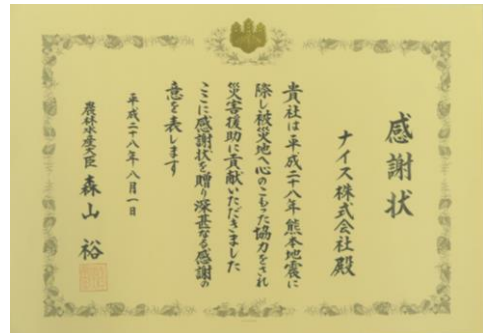 感謝状
ナイス株式会社殿
貴社は平成二十八年熊本地震に
際し被災地へ心のこもった協力をされ
災害援助に貢献いただきました
ここに感謝状を贈り深甚なる感謝の
意を表します
平成二十八年八月一日
農林水産大臣 森山裕